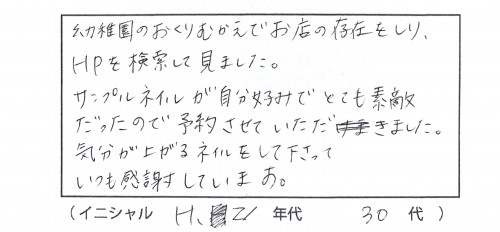 幼稚園のおくりむかえでお店の存在をしり、
HPを検索して見ました。
サンプルネイルが自分好みでとても素敵
だったので予約させていただきました。
気分が上がるネイルをして下さって
いつも感謝しています。
(イニシャル H、 年代 30 代 )